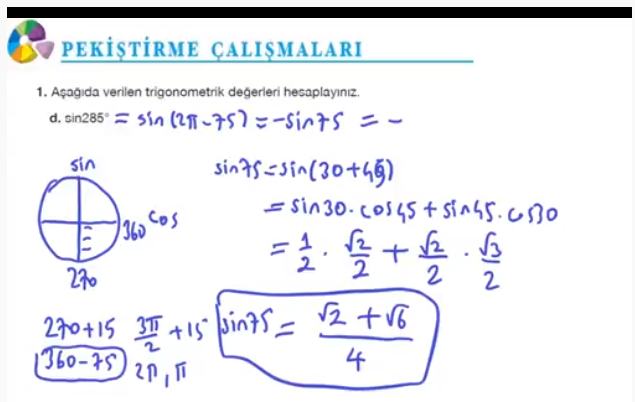 PEKİŞTİRME ÇALIŞMALARI
1. Aşağıda verilen trigonometrik değerleri hesaplayınız.
d. sin285° = sin(2π-75) = -sin75 = -
sin
cos
360
270
sin75=sin(30+45)
= sin30.cos45+sin45.cos30
= 1/2 . √2/2 + √2/2 . √3/2
270+15 3π/2 +15
360-75 2π, π
sin75 = √2 + √6 / 4